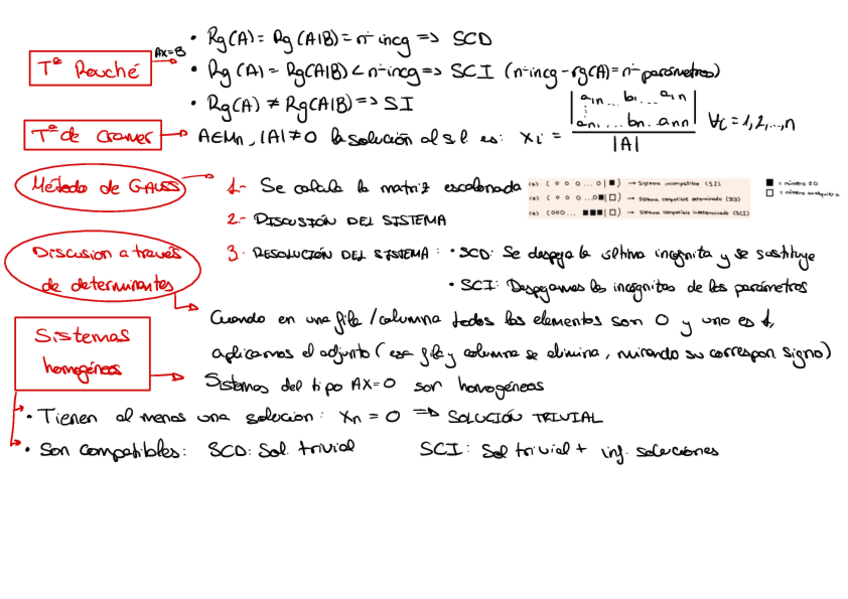 • Rg(A) = Rg(A|B) = nº incg => SCD
Tª Rouché AX=B • Rg(A) = Rg(A|B) < nº incg => SCI (nº incg - rg(A) = nº parámetros)
• Rg(A) ≠ Rg(A|B) => SI
Tª de Cramer A∈Mn, |A|≠0 la solución al s.l es: xi = |a1n ... b1 ... a1n ⋮ an1 ... bn ... ann| / |A| ∀i = 1,2,...,n
Método de GAUSS 1.- Se calcula la matriz escalonada
(a) ( 0 0 0 ... 0 | ■ ) → Sistema incompatible (S.I.)
(a) ( 0 0 0 ... 0 ■ | □ ) → Sistema compatible determinado (SCD)
(a) ( 0 0 0 ... ■ ■ ■ | □ ) → Sistema compatible indeterminado (SCI)
■ = número ≠0
□ = número cualquiera
2.- DISCUSIÓN DEL SISTEMA
3.- RESOLUCIÓN DEL SISTEMA: • SCD: Se despeja la última incógnita y se sustituye
• SCI: Despejamos las incógnitas de los parámetros
Discusion a través
de determinantes
Cuando en una fila/columna todos los elementos son 0 y uno es 1,
aplicamos el adjunto (esa fila y columna se elimina, mirando su correspon signo)
Sistemas
homogéneos
Sistemas del tipo AX=0 son homogéneos
• Tienen al menos una solucion: Xn = 0 => SOLUCIÓN TRIVIAL
• Son compatibles: SCD: Sol. trivial SCI: Sol trivial + inf. soluciones